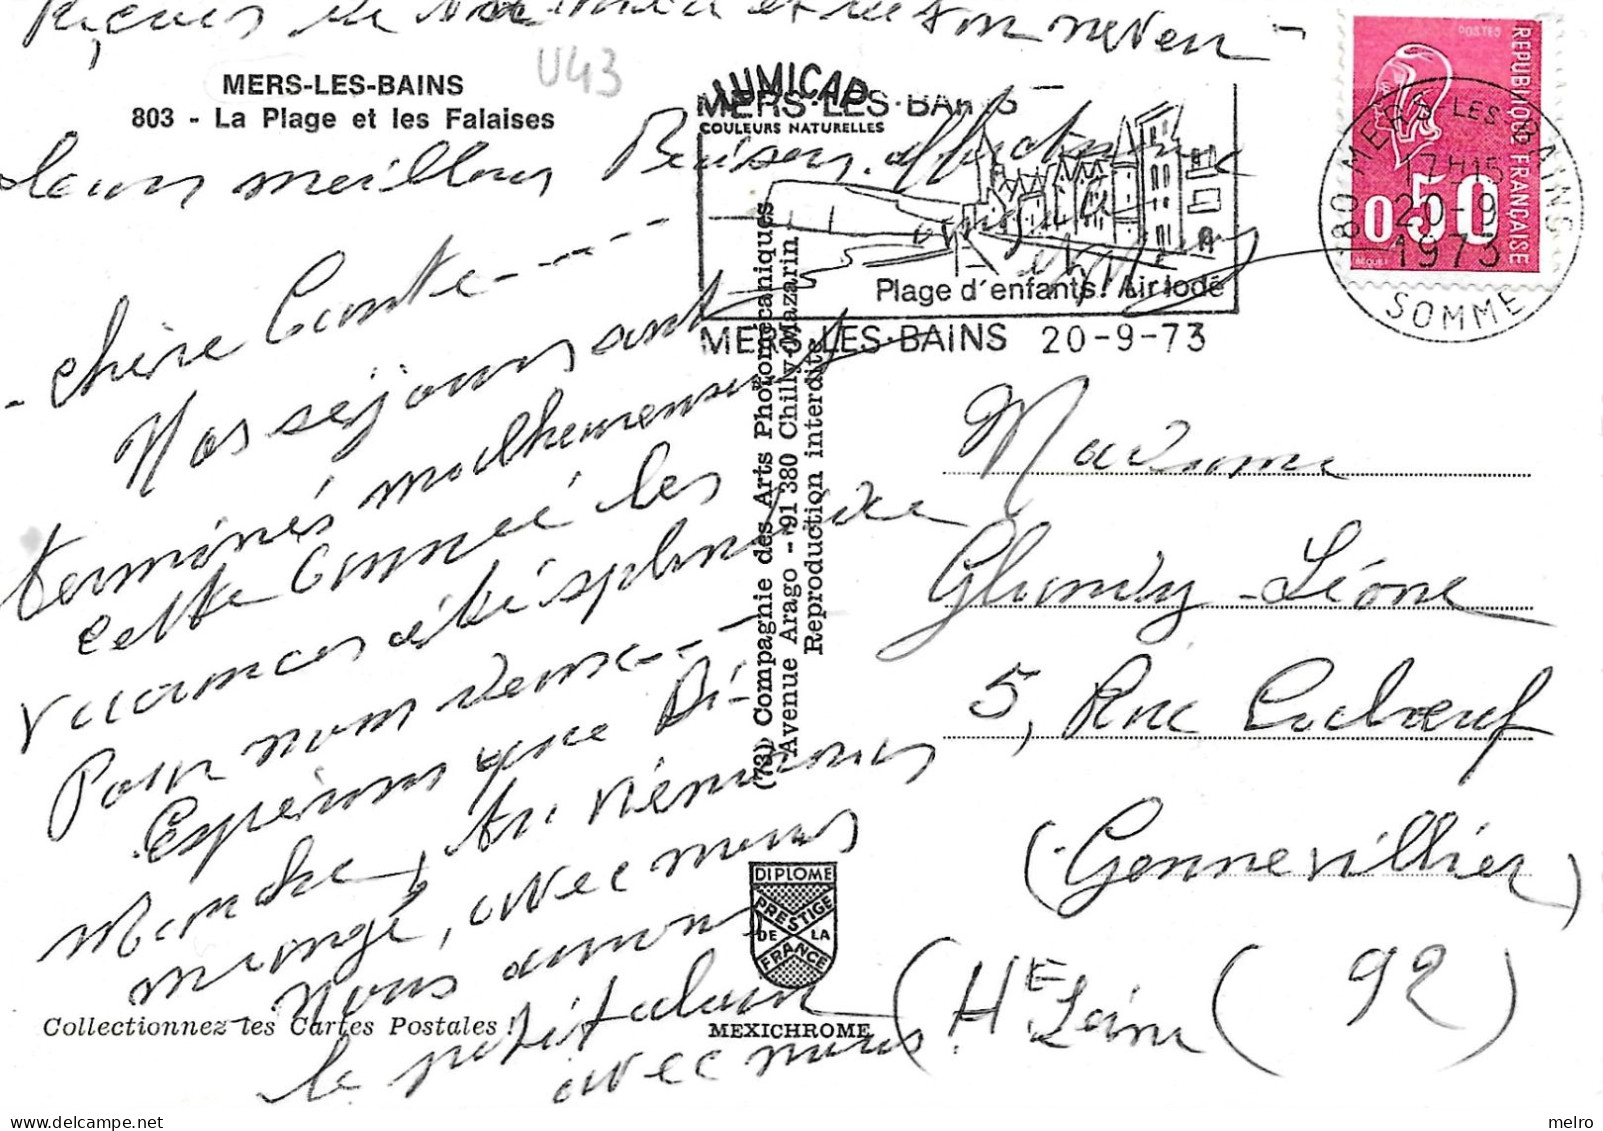 Reçues de
MERS-LES-BAINS
803 - La Plage et les Falaises
U43
leurs meilleurs Baisers. affectueux
- chère Tante - - - -
Nos séjours sont
terminés malheureusement
cette année les
vacances été splendide
Pour nous
Espérons que Di-
manche, tu viendras
mangé, avec nous
Nous aurons
le petit alain
avec nous.
Collectionnez les Cartes Postales !
LUMICAP
COULEURS NATURELLES
MERS·LES·BAINS
Plage d'enfants. Air Iodé
MERS-LES-BAINS 20-9-73
(73) Compagnie des Arts Photomécaniques
Avenue Arago - 91 380 Chilly-Mazarin
Reproduction interdite
DIPLOME
PRESTIGE
DE LA
FRANCE
MEXICHROME
POSTES
REPUBLIQUE FRANÇAISE
0,50
BEQUET
80 MERS-LES-BAINS
17H15
20-9
1973
SOMME
Madame
Léone
5, Rue
(Gennevilliers)
(92)
melro